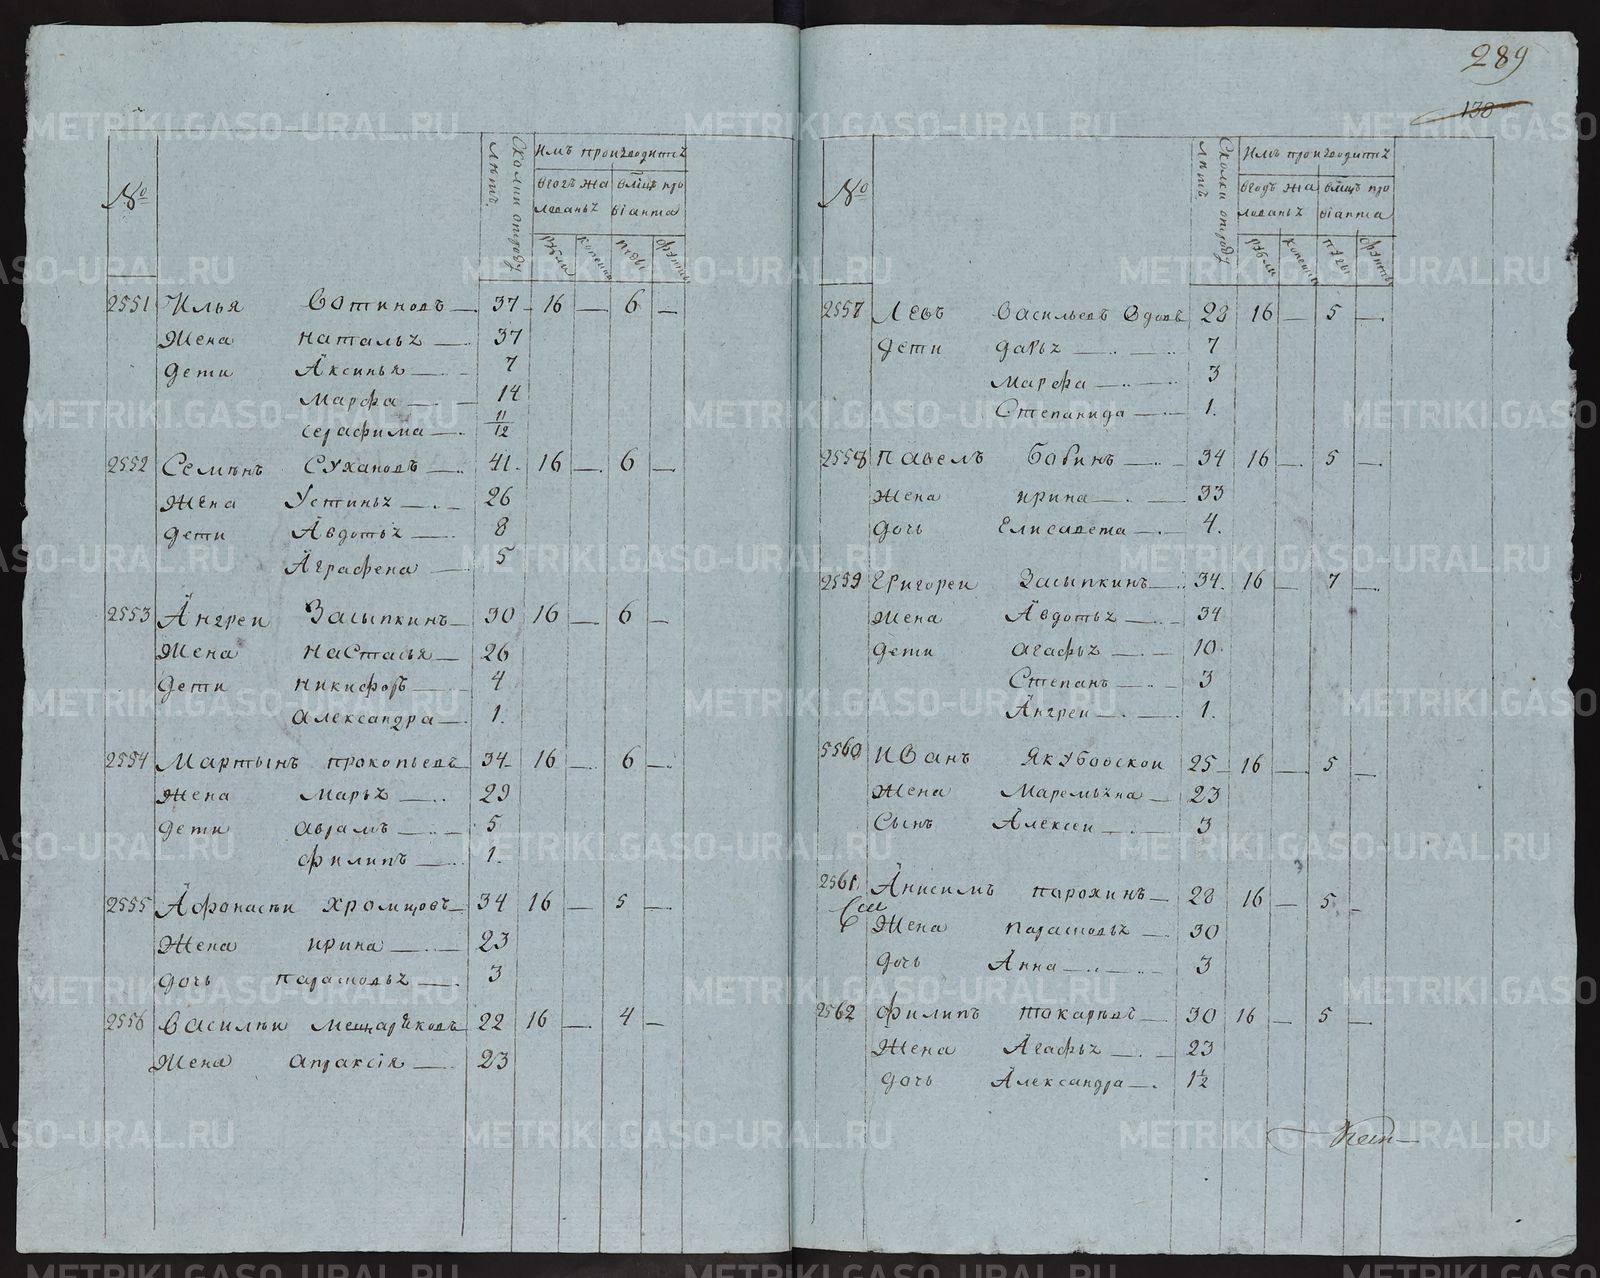 289
138
№
Сколки отроду
лѣтъ
Имъ производитъ
вгодъ жа
лованья
вмцъ про
віанта
рубли
копеики
пуды
фунты
2551 Илья Вотиновъ 37 16 — 6 —
Жена наталья 37
дети Аксинья 7
Марфа 14
серафима 11/12
2552 Семѣнъ Сухановъ 41. 16 — 6 —
Жена Устинья 26
дети Авдотья 8
Аграфена 5
2553 Андреи Засыпкинъ 30 16 — 6 —
Жена настасья 26
дети никифоръ 4
александра 1.
2554 Мартынъ прокопьевъ 34 16 — 6 —
Жена марья 29
дети аврамъ 5
филипъ 1.
2555 Афонасѣи хромцовъ 34 16 — 5 —
Жена ирина 23
дочь парасковья 3
2556 Василѣи Мещаряковъ 22 16 — 4 —
Жена апраксія 23
№
Сколки отроду
лѣтъ
Имъ производитъ
вгодъ жа
лованья
вмцъ про
віанта
рубли
копеики
пуды
фунты
2557 Левъ Васильевъ Вдовъ 28 16 — 5 —
дети дарья 7
марфа 3
Степанида 1.
2558 павелъ бабинъ 34 16 — 5 —
Жена ирина 33
дочь Елисавета 4.
2559 Григореи Засыпкинъ 34. 16 — 7 —
Жена Авдотья 34
дети агафья 10.
Степанъ 3
Андреи 1.
5560 иванъ Якубовскои 25 16 — 5 —
Жена Маремьяна 23
Сынъ Алексеи 3
2561 Анисимъ парохинъ 28 16 — 5 —
Жена парасковья 30
дочь Анна 3
2562 филипъ токаревъ 30 16 — 5 —
Жена Агафья 23
дочь Александра 1½